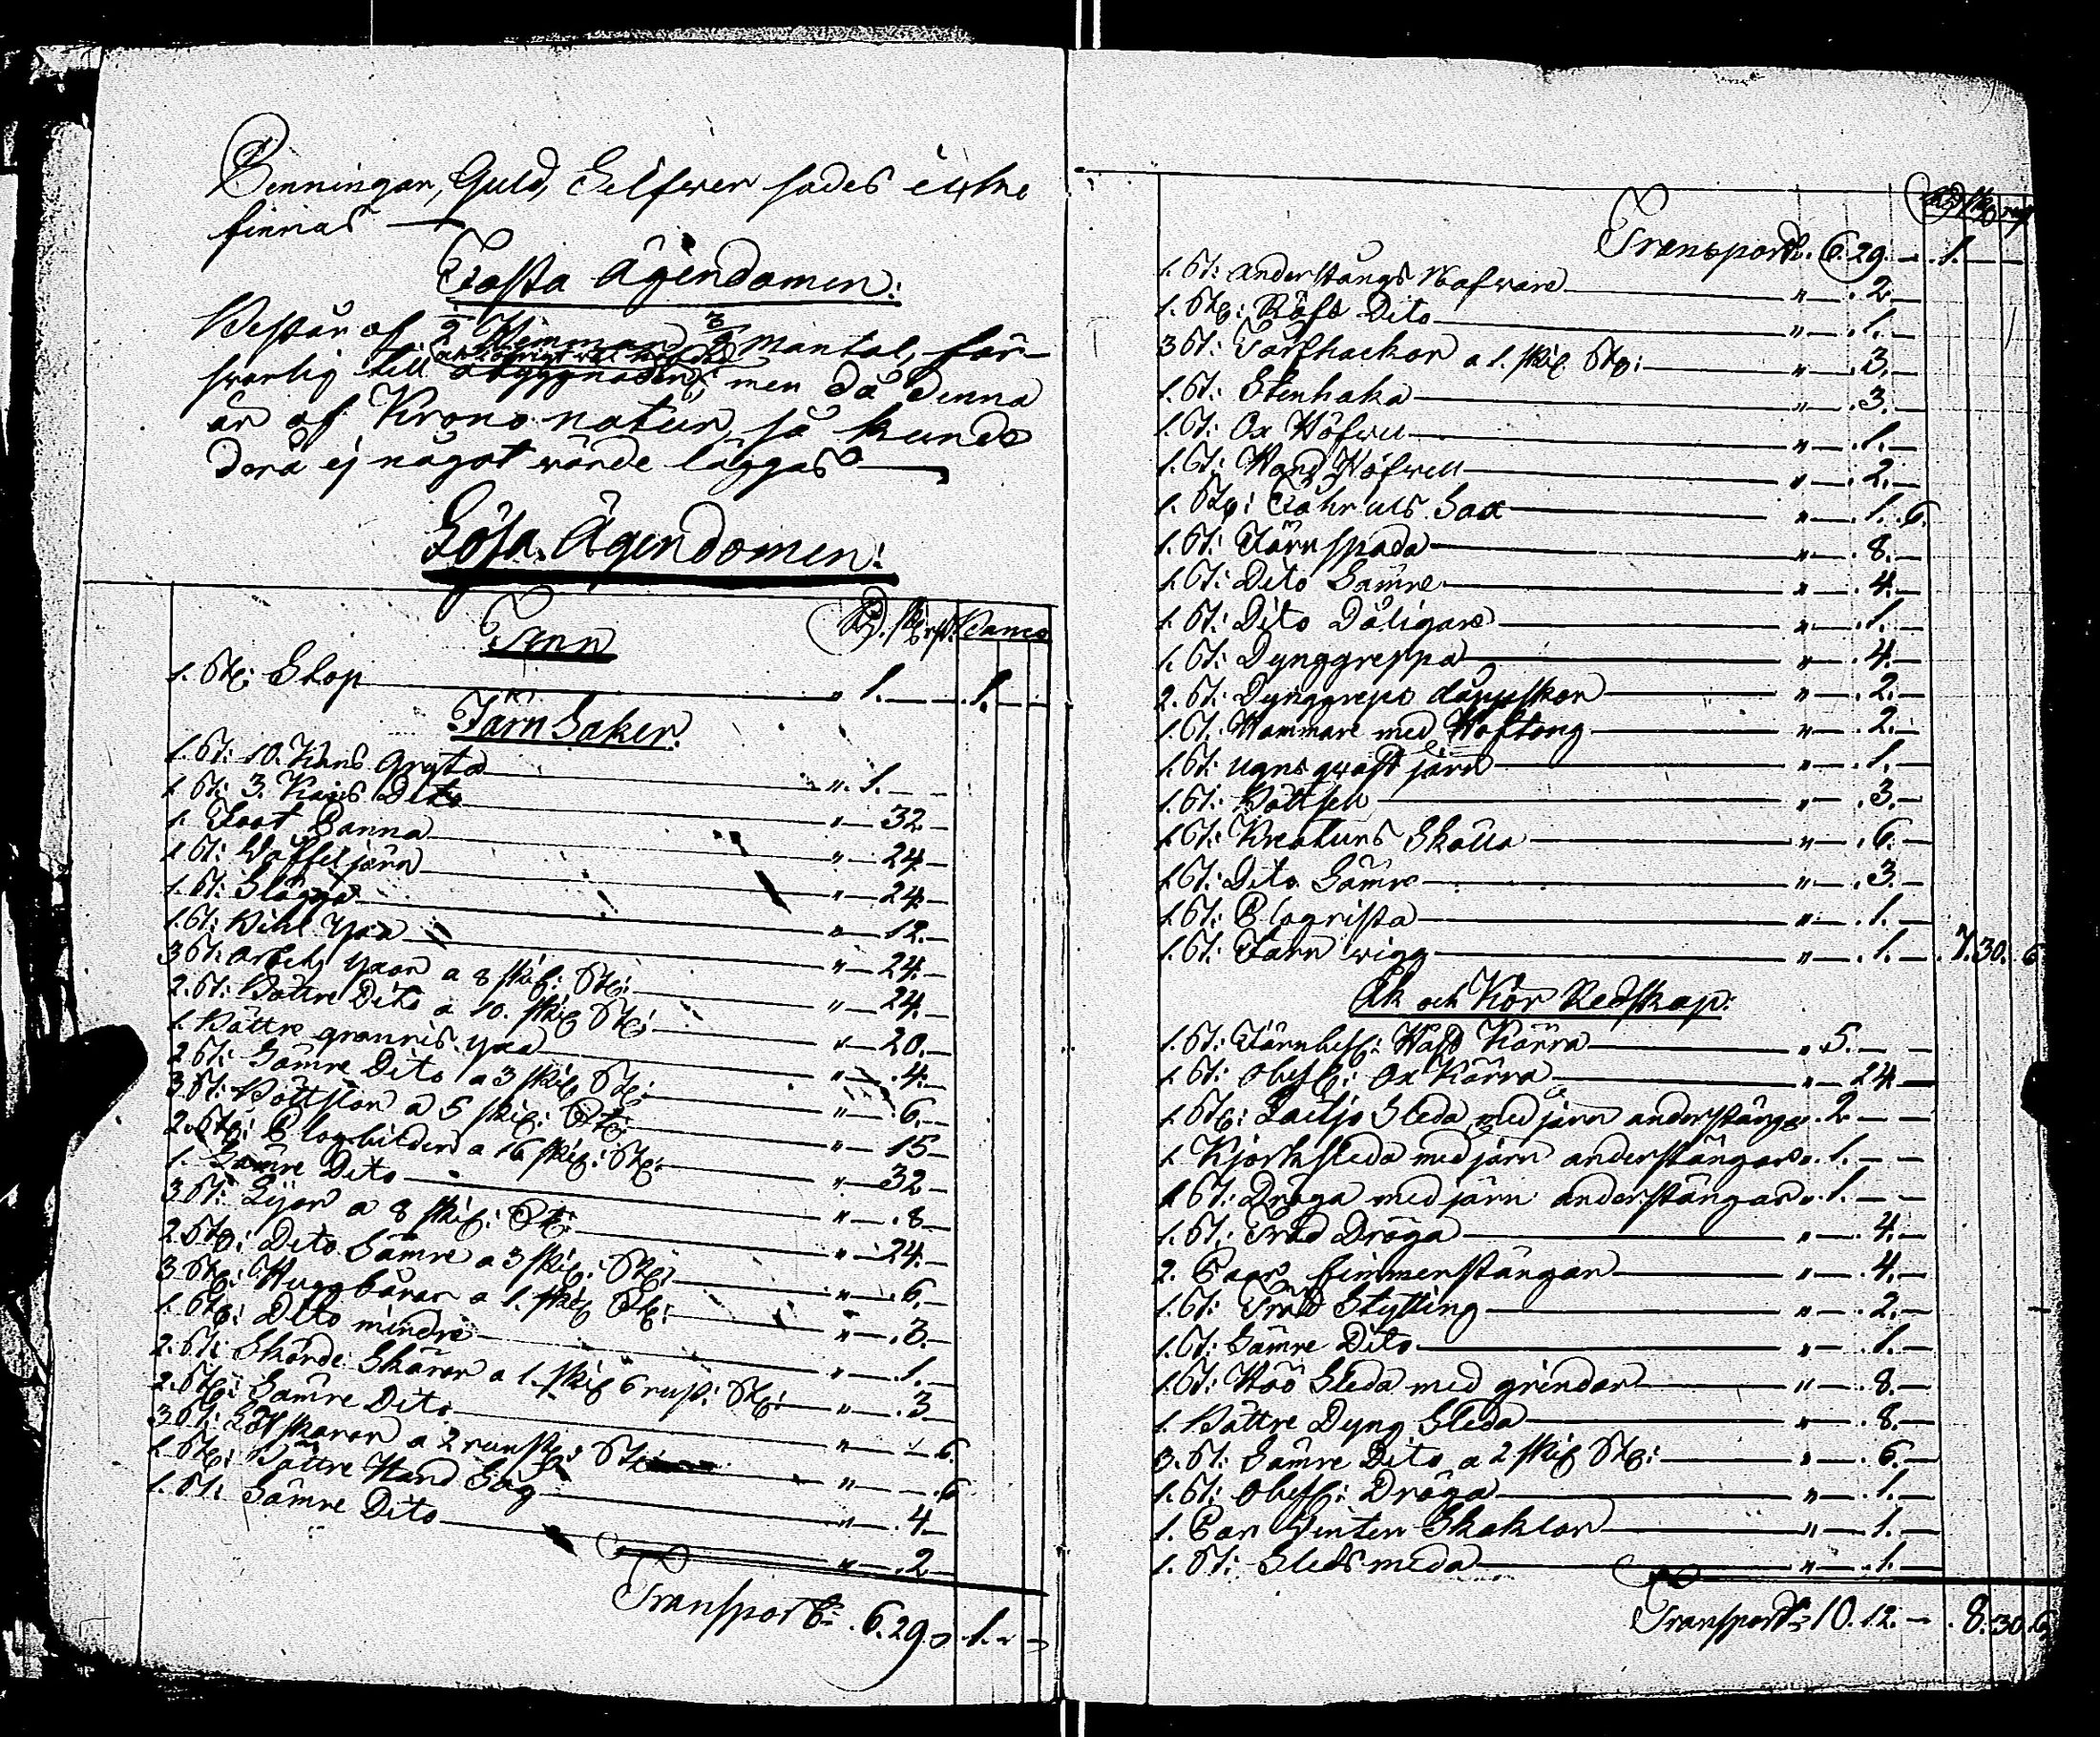 Penningar, Guld, Silfwer sades ickie
finnas
Fasta Ägendomen:
Består af 1/2 Hemman 3/8 Mantal, för-
swarlig till åbyggnaden, men då denna
är af Krono natur, så kunde
derå ej något wärde läggas
Lösa Ägendomen:
Tenn Rd. sk rst. Banco
1. Stk: Stop " 1. — 1. —
Järn Saker.
1. St: 10. Kans Gryta " 1. —
1 St: 3. Kans Dito " — 32 —
1. Foot Panna " — 24 —
1 St: Wåffel järn " — 24 —
1. St: Slägga " — 12. —
1. St: Bihl Yxa " — 24. —
3 St: Arbets Yxor a 8 skil: Stk: " — 24. —
2. St: Bättre Dito a 10. skil Stk: " — 20. —
1. Bättre granris Yxa " — .4. —
2 St: Sämre Dito a 3 skil Stk: " — .6. —
3 St: Böttslor a 5 skil: Stk: " — 15 —
2. Stk: Plogbilder a 16 skil: Stk: " — 32 —
1. Sämre Dito " — .8 —
3 St: Lijor a 8 skil: Stk: " — 24. —
2 Stk: Dito Sämre a 3 skil: Stk: " — .6. —
3 Stk: Huggbårar a 1. skil Stk: " — .3. —
1. Stk: Dito mindre " — .1. —
2. St: Skörde Skäror a 1. skil 6 runst: Stk: " — .3 —
2. Stk: Sämre Dito " — — 6.
3 St: Löfskäror a 2 runst: Stk: " — — .6
1. Stk: Bättre Hand Såg " — .4 —
1. St: Sämre Dito " — .2 —
Transport: 6. 29. — 1. —
Rd sk rst
Transport. 6. 29. — . 1. —
1. St: Anderstångs Nafware " — .2 —
1. Stk: Räfs Dito " — .1. —
3 St: Torfhackor a 1. skil. Stk: " — .3. —
1. St: Stenhaka " — .3. —
1. St: Ox Höfwel " — .1. —
1. St: Hand Höfwell " — .2. —
1. Stk: Fåhruls Sax " — .1. .6.
1. St: Järnspada " — .8. —
1. St: Dito Sämre " — .4. —
1. St: Dito Dåligare " — .1. —
1. St: Dynggreppa " — .4. —
2. St: Dynggreps döppskor " — .2. —
1. St: Hammare med Hoftong " — .2. —
1. St: ugns qwast järn " — .1. —
1. St: Böttsell " — .3. —
1 St: Kreaturs Skälla " — .6. —
1 St: Dito Sämre " — .3. —
1 St: Plogrista " — .1. —
1. St: Järn wigg " — .1. — . 7. 30. 6
Åk och Kör Redskap:
1. St: Järnbesl: Häst Kärra " 5. — —
1. St: Obesl: Ox Kärra " — 24 —
1. Stk: Lassjo Sleda, med järn anderstänger . 2 — —
1. Kjörksleda med järn anderstängar " . 1. — —
1 St: Dröga med järn anderstängar " . 1. — —
1. St: Träd Dröga " — .4. —
2. Paar fimmerstängar " — .4. —
1. St: Träd Stytting " — .2. —
1. St: Sämre Dito " — .1. —
1. St: Höö Sleda med grindar " — .8. —
1. Bättre Dyng Sleda " — .8. —
3. St: Sämre Dito a 2 skil Stk: " — .6. —
1. St: Obesl: Dröga " — .1. —
1. Par Winter Skaklor " — .1. —
1. St: Sledsmeda " — .1. —
Transport: 10. 12. — . 8. 30. 6